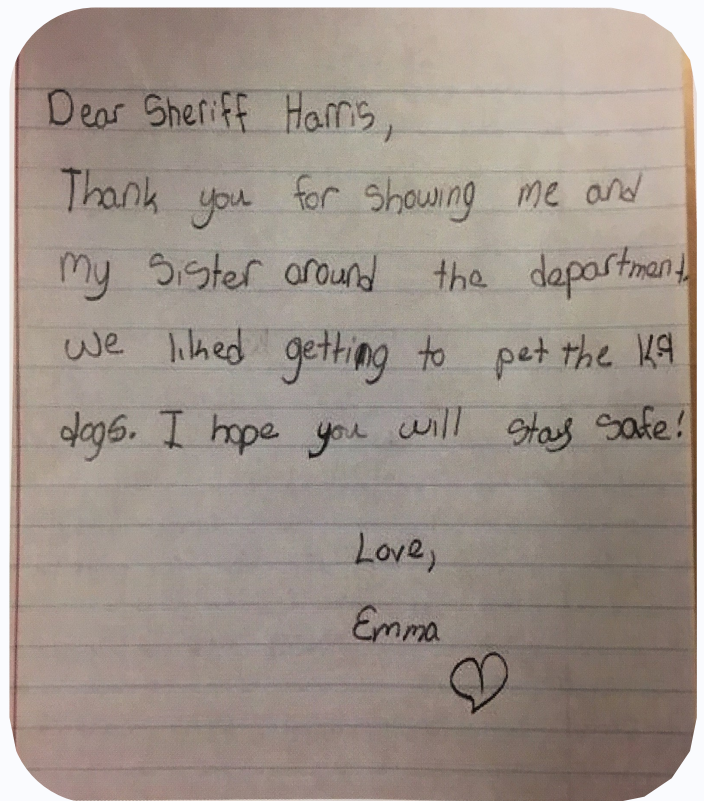 Dear Sheriff Harris,
Thank you for showing me and
my Sister around the department.
We liked getting to pet the K9
dogs. I hope you will stay safe!
Love,
Emma